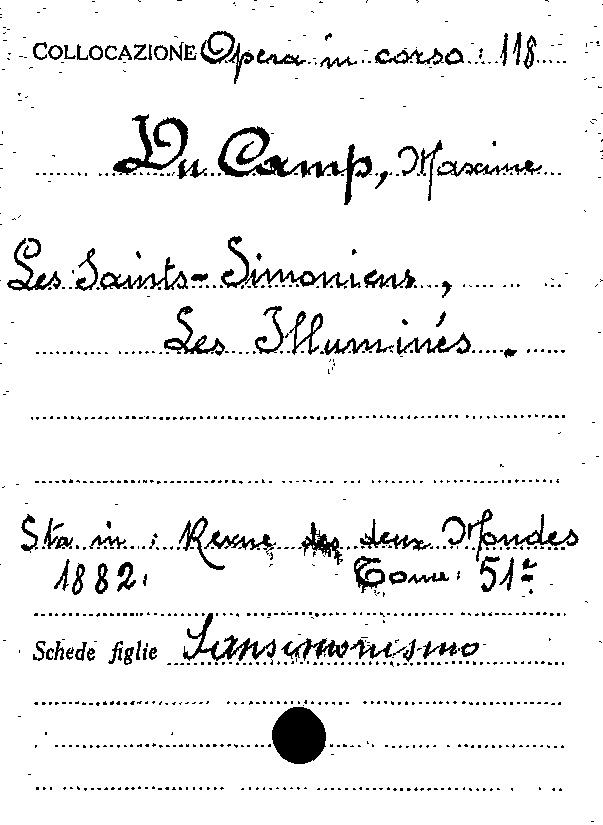 COLLOCAZIONE Opera in corso: 118
Du Camp, Maxime
Les Saints-Simoniens,
Les Illuminés.
Sta in: Revue des deux Mondes
1882. Tome: 51º
Schede figlie Sansimonismo